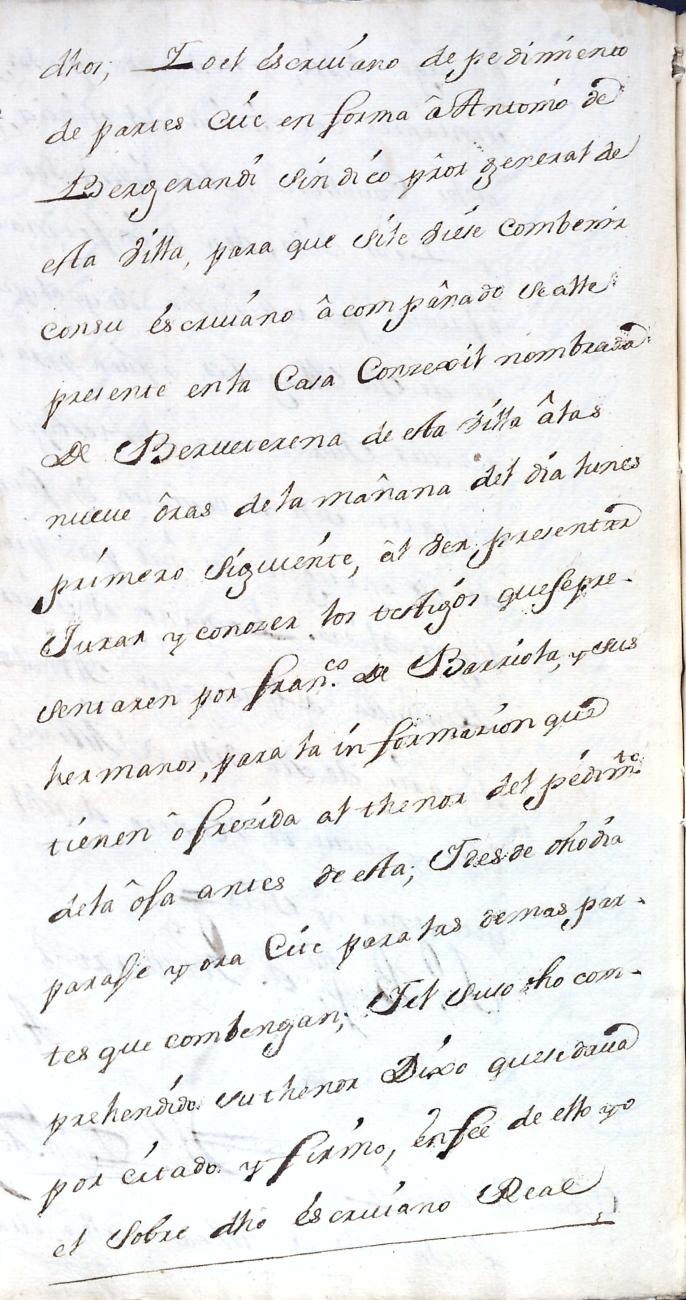 dhos; Yo el escriuano de pedimiento
de partes Cite en forma â Antonio de
Bergerandi sindico prôr general de
esta Villa, para que si le diese combenir
consu escriuano âcompânado se alle
presente en la Casa Conzexil nombrada
De Berueterena de esta Villa âlas
nueue ôras de la mañana del dia lunes
primero siguiente, âl ver presentar
Jurar y conozer los testigos que se pre-
sentaren por fran.co de Barriola, y sus
hermanos, para la informazion que
tienen ôfrezida al thenor del pedim.to
de la ôja antes de esta; Y desde dho dia
parasse y ora Cite para las demas par-
tes que combengan; Y el suso dho com-
prehendido su thenor Dixo que se daua
por citado y firmo, en fee de ello yo
el sobre dho escriuano Real